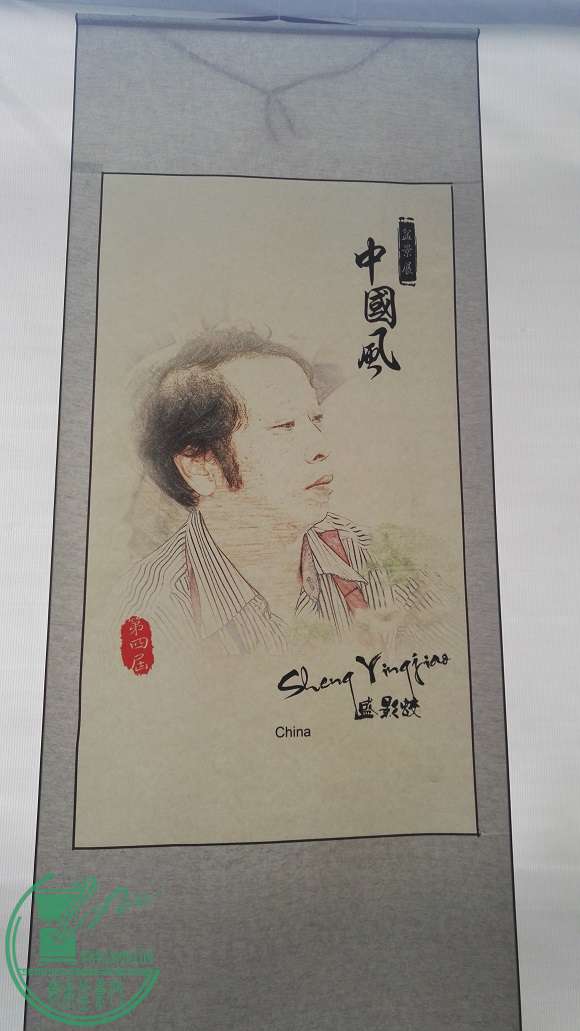 盆景展
中國風
第四屆
Sheng Yingjiao
盛影蛟
China